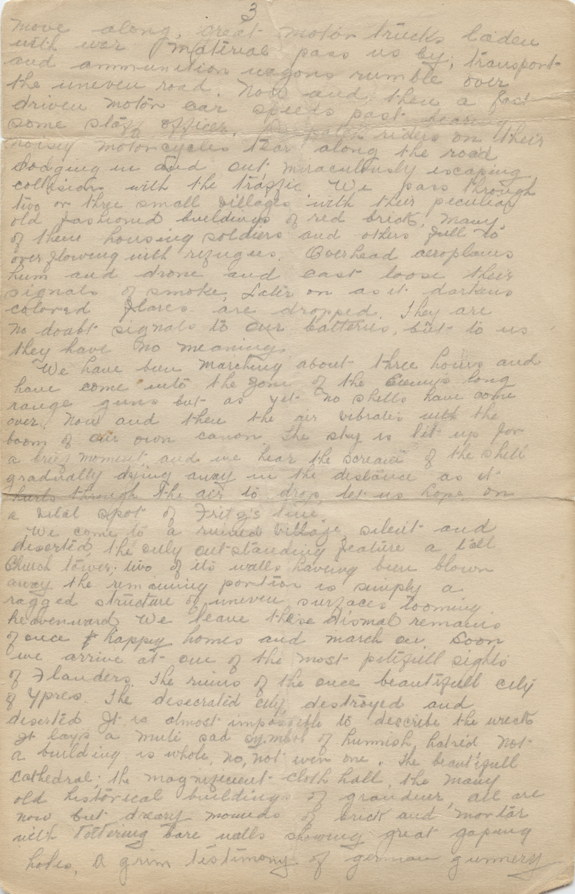 3
move along, great motor trucks laden
with war material pass us by, transport
and ammunition wagons rumble over
the uneven road. Now and then a fast
driven motor car speeds past bearing
some staff officer. Dispatch riders on their
noisy motorcycles tear along the road
dodging in and out miraculously escaping
collisions with the traffic. We pass through
two or three small villages with their peculiar
old fashioned buildings of red brick, many
of them housing soldiers and others full to
overflowing with refugees. Overhead aeroplanes
hum and drone and cast loose their
signals of smoke, later on as it darkens
colored flares are dropped. They are
no doubt signals to our batteries, but to us
they have no meaning.
We have been marching about three hours and
have come into the zone of the Enemys long
range guns but as yet no shells have come
over. Now and then the air vibrates with the
boom of our own canon. The sky is lit up for
a brief moment and we hear the scream of the shell
gradually dying away in the distance as it
hurls through the air to drop let us hope on
a vital spot of Fritz's line.
We come to a ruined village, silent and
deserted, the only outstanding feature a tall
Church tower; two of its walls having been blown
away the remaining portion is simply a
ragged structure of uneven surfaces looming
heavenward. We leave these dismal remains
of once happy homes and march on. Soon
we arrive at one of the most pitifull sights
of Flanders. The ruins of the once beautifull city
of Ypres. The desecrated city, destroyed and
deserted. It is almost impossible to describe the wreck
It lays a mute sad symbol of hunnish hatred. Not
a building is whole, no, not even one. The beautifull
Cathedral; the magnificent cloth hall, the many
old historical buildings of grandeur all are
now but dreary mounds of brick and mortar
with tottering bare walls showing great gaping
holes. A grim testimony of german gunnery